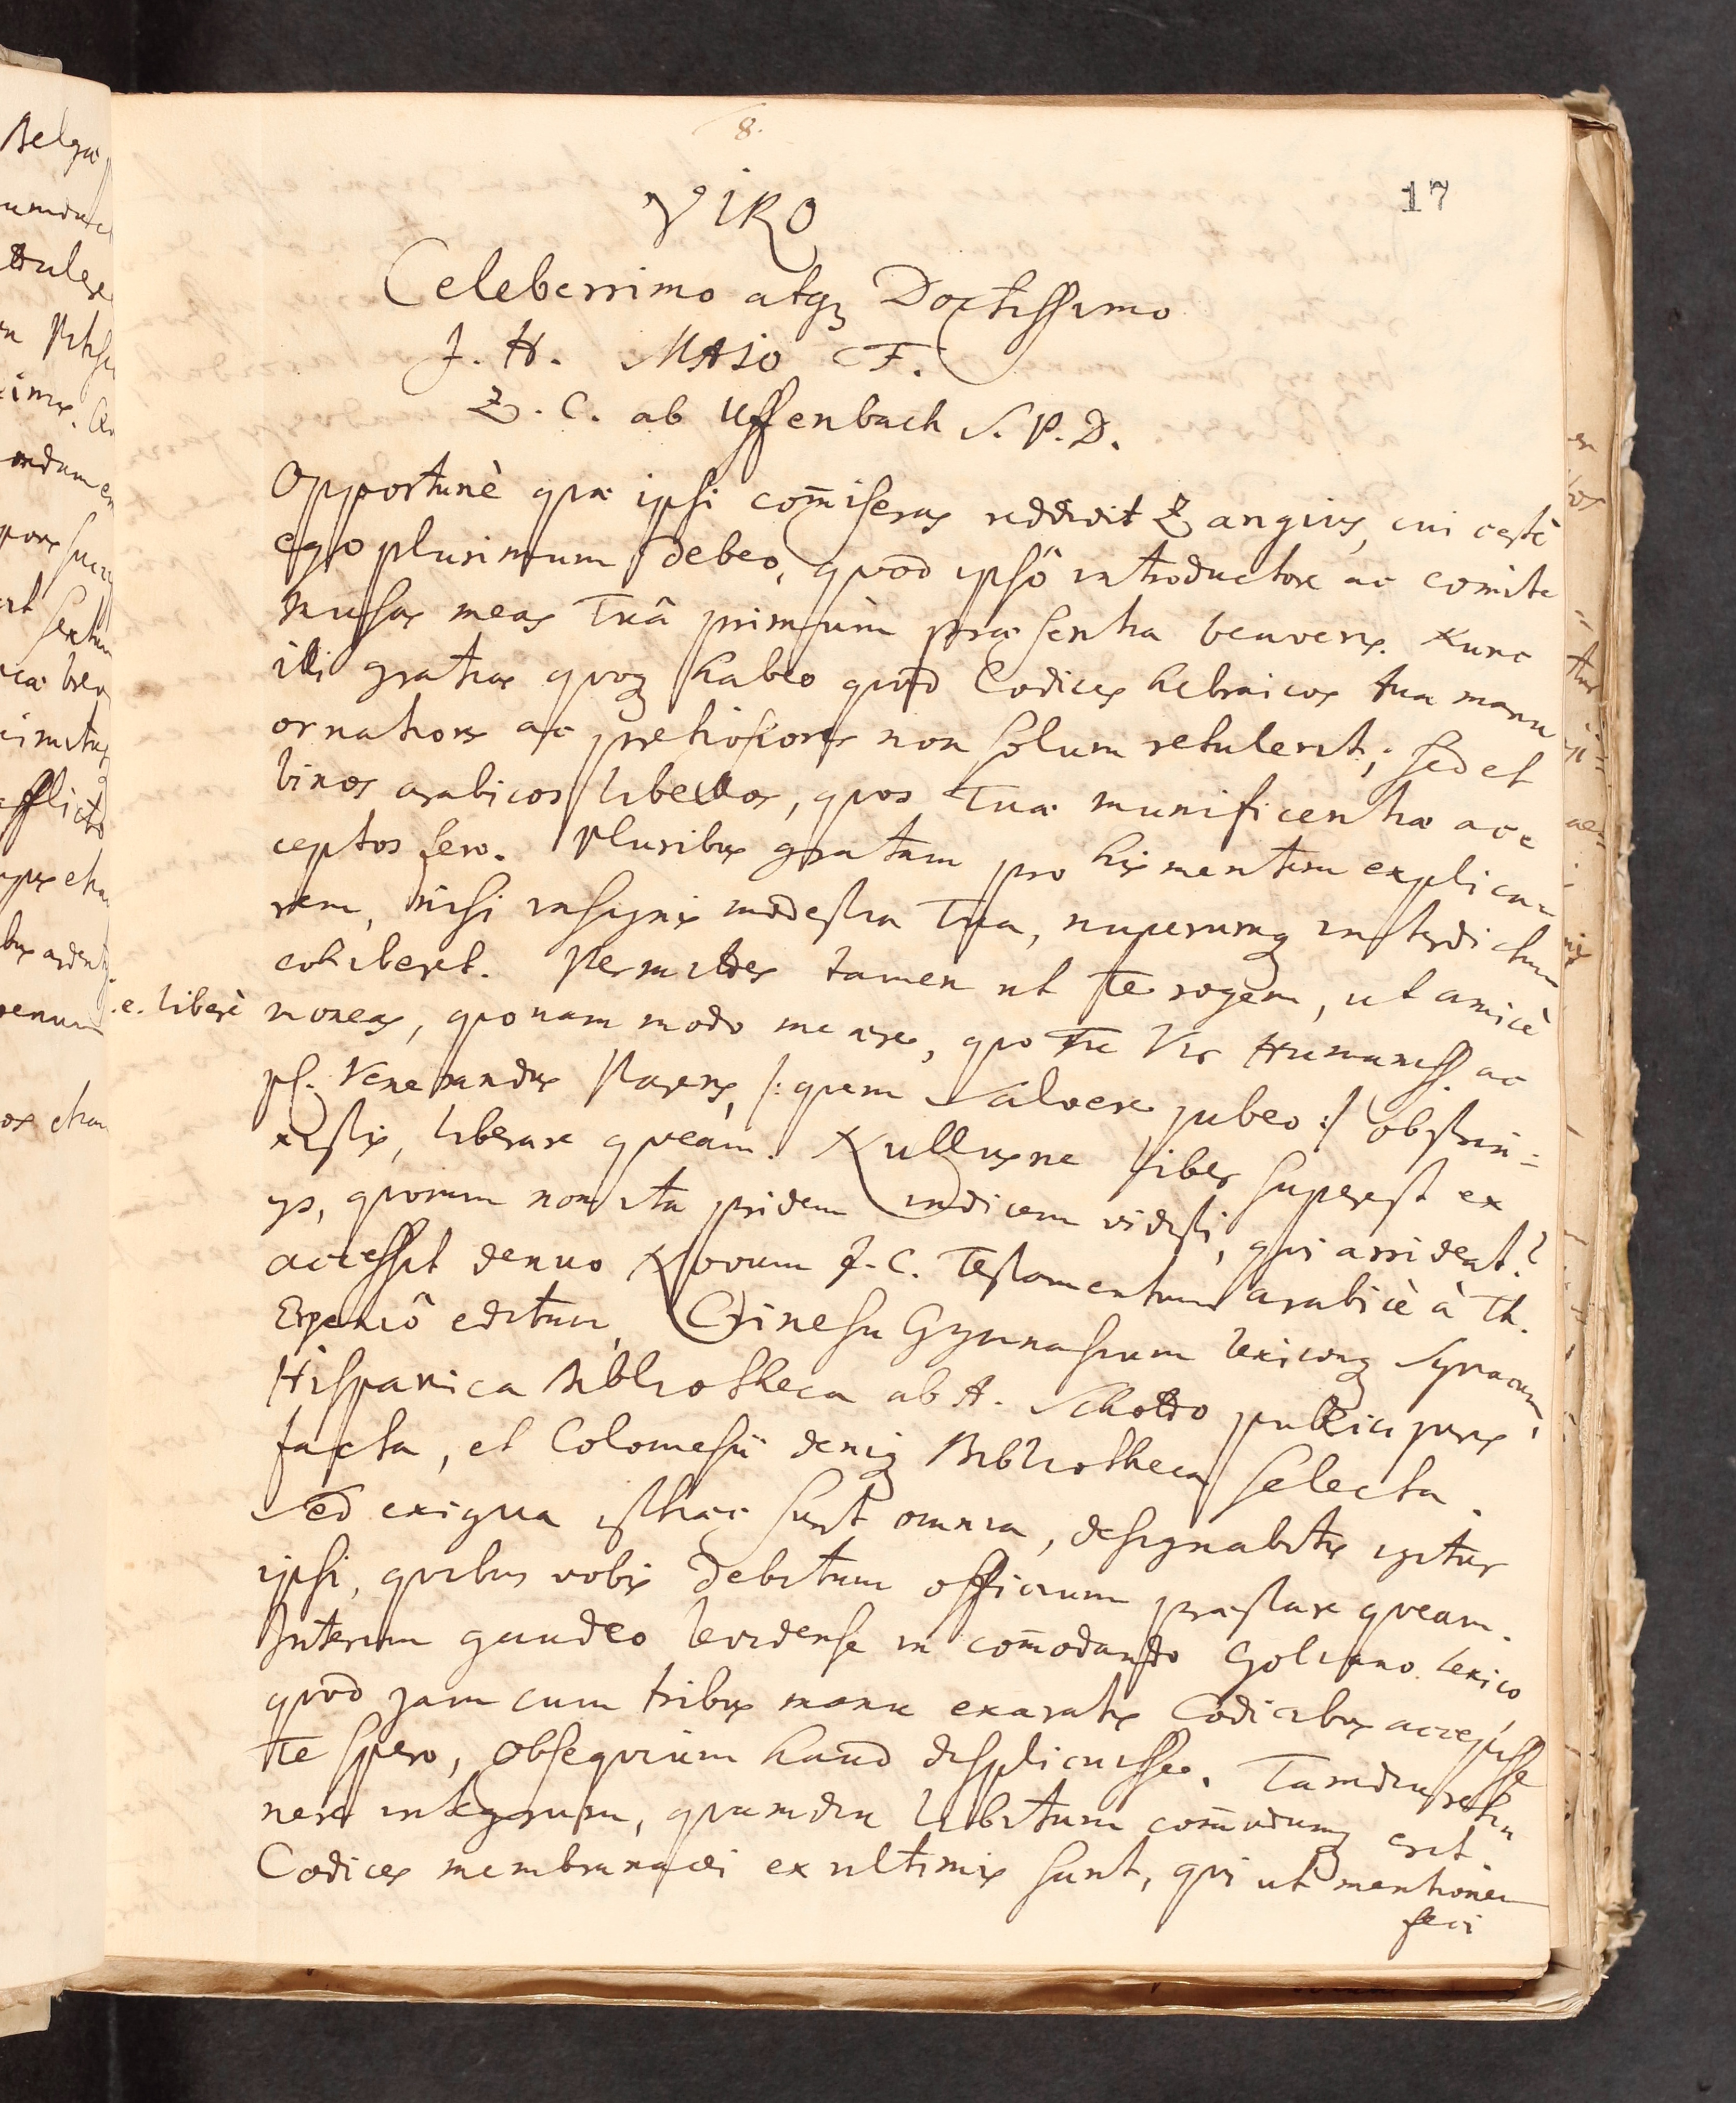 8.
17
VIRO
Celeberrimo atq; Doctissimo
J. H. MAJO F.
Z. C. ab Uffenbach S. P. D.
Opportunè quæ ipsi com̄iseras reddidit Zangius, cui certè
ego plurimum debeo, quod ipsô introductore ac comite
Musas meas Tuâ primùm præsentia beaveris. Nunc
illi gratias quoq; habeo quod Codices hebraicos tua manu
ornatiores ac pretiosiores non solum retulerit; sed et
binos arabicos libellos, quos Tuæ munificentiæ ac=
ceptos fero. Pluribus gratam pro his mentem explica=
rem, nisi insignis modestia Tua, nuperumq; interdictum
cohiberet. Permittes tamen ut Te rogem, ut amicè
i.e. liberè
moneas, quonam modo me ære, quo Tu Vir Humaniss. ac
pl. Venerandus Parens, /: quem Salvere jubeo :/ obstrin=
xistis, liberare queam. Nullusne liber superest ex
ijs, quorum non ita pridem indicem vidisti, qui arrideat?
accessit denuo Novum J. C. Testamentum arabicè à Th.
Erpeniô editum, Crinesii Gymnasium lexiconq; Syriacum,
Hispanica Bibliotheca ab A. Schotto publici juris
facta, et Colomesii deniq; Bibliotheca selecta.
Sed exigua isthæc sunt omnia, designabitis igitur
ipsi, quibus vobis debitum officium præstare queam.
Interim gaudeo levidense in com̄odando Goliano lexico
quod jam cum tribus manu exaratis Codicibus accepisse
Te spero, obsequium haud displicuisse. Tamdiu reti=
nere integrum, quamdiu libitum com̄odumq; erit.
Codices membranacei ex ultimis sunt, qui ut mentionem
feci